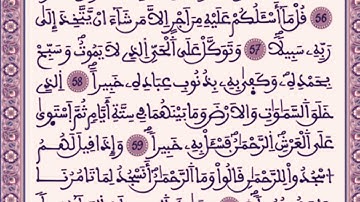 56 قُلْ مَآ أَسْـَٔلُكُمْ عَلَيْهِ مِنْ أَجْرٍ اِلَّا مَن شَآءَ اَنْ يَّتَّخِذَ إِلَىٰ
رَبِّهِۦ سَبِيلاً 57 وَتَوَكَّلْ عَلَى اَلْحَيِّ اِلذِے لَا يَمُوتُ وَسَبِّحْ
بِحَمْدِهِۦ وَكَفَىٰ بِهِۦ بِذُنُوبِ عِبَادِهِۦ خَبِيراً 58 اِلذِے
خَلَقَ اَلسَّمَٰوَٰتِ وَالَارْضَ وَمَا بَيْنَهُمَا فِے سِتَّةِ أَيَّامٍ ثُمَّ اَسْتَوَىٰ
عَلَى اَلْعَرْشِ اِلرَّحْمَٰنُ فَسْـَٔلْ بِهِۦ خَبِيراً 59 وَإِذَا قِيلَ لَهُمُ
اُسْجُدُواْ لِلرَّحْمَٰنِ قَالُواْ وَمَا اَلرَّحْمَٰنُ أَنَسْجُدُ لِمَا تَامُرُنَا